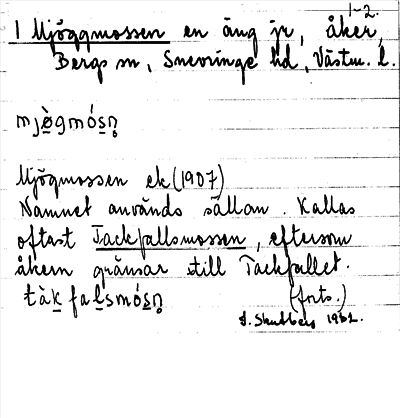 1-2.
1 Mjöggmossen en äng jr, åker,
Bergs sn, Snevringe hd, Västm. l.
mjò̱gmósn̥
Mjögmossen ek (1907)
Namnet används sällan. Kallas
oftast Tackfallsmossen, eftersom
åkern gränsar till Tackfallet.
tàḵfaḻsmósn̥ (forts.)